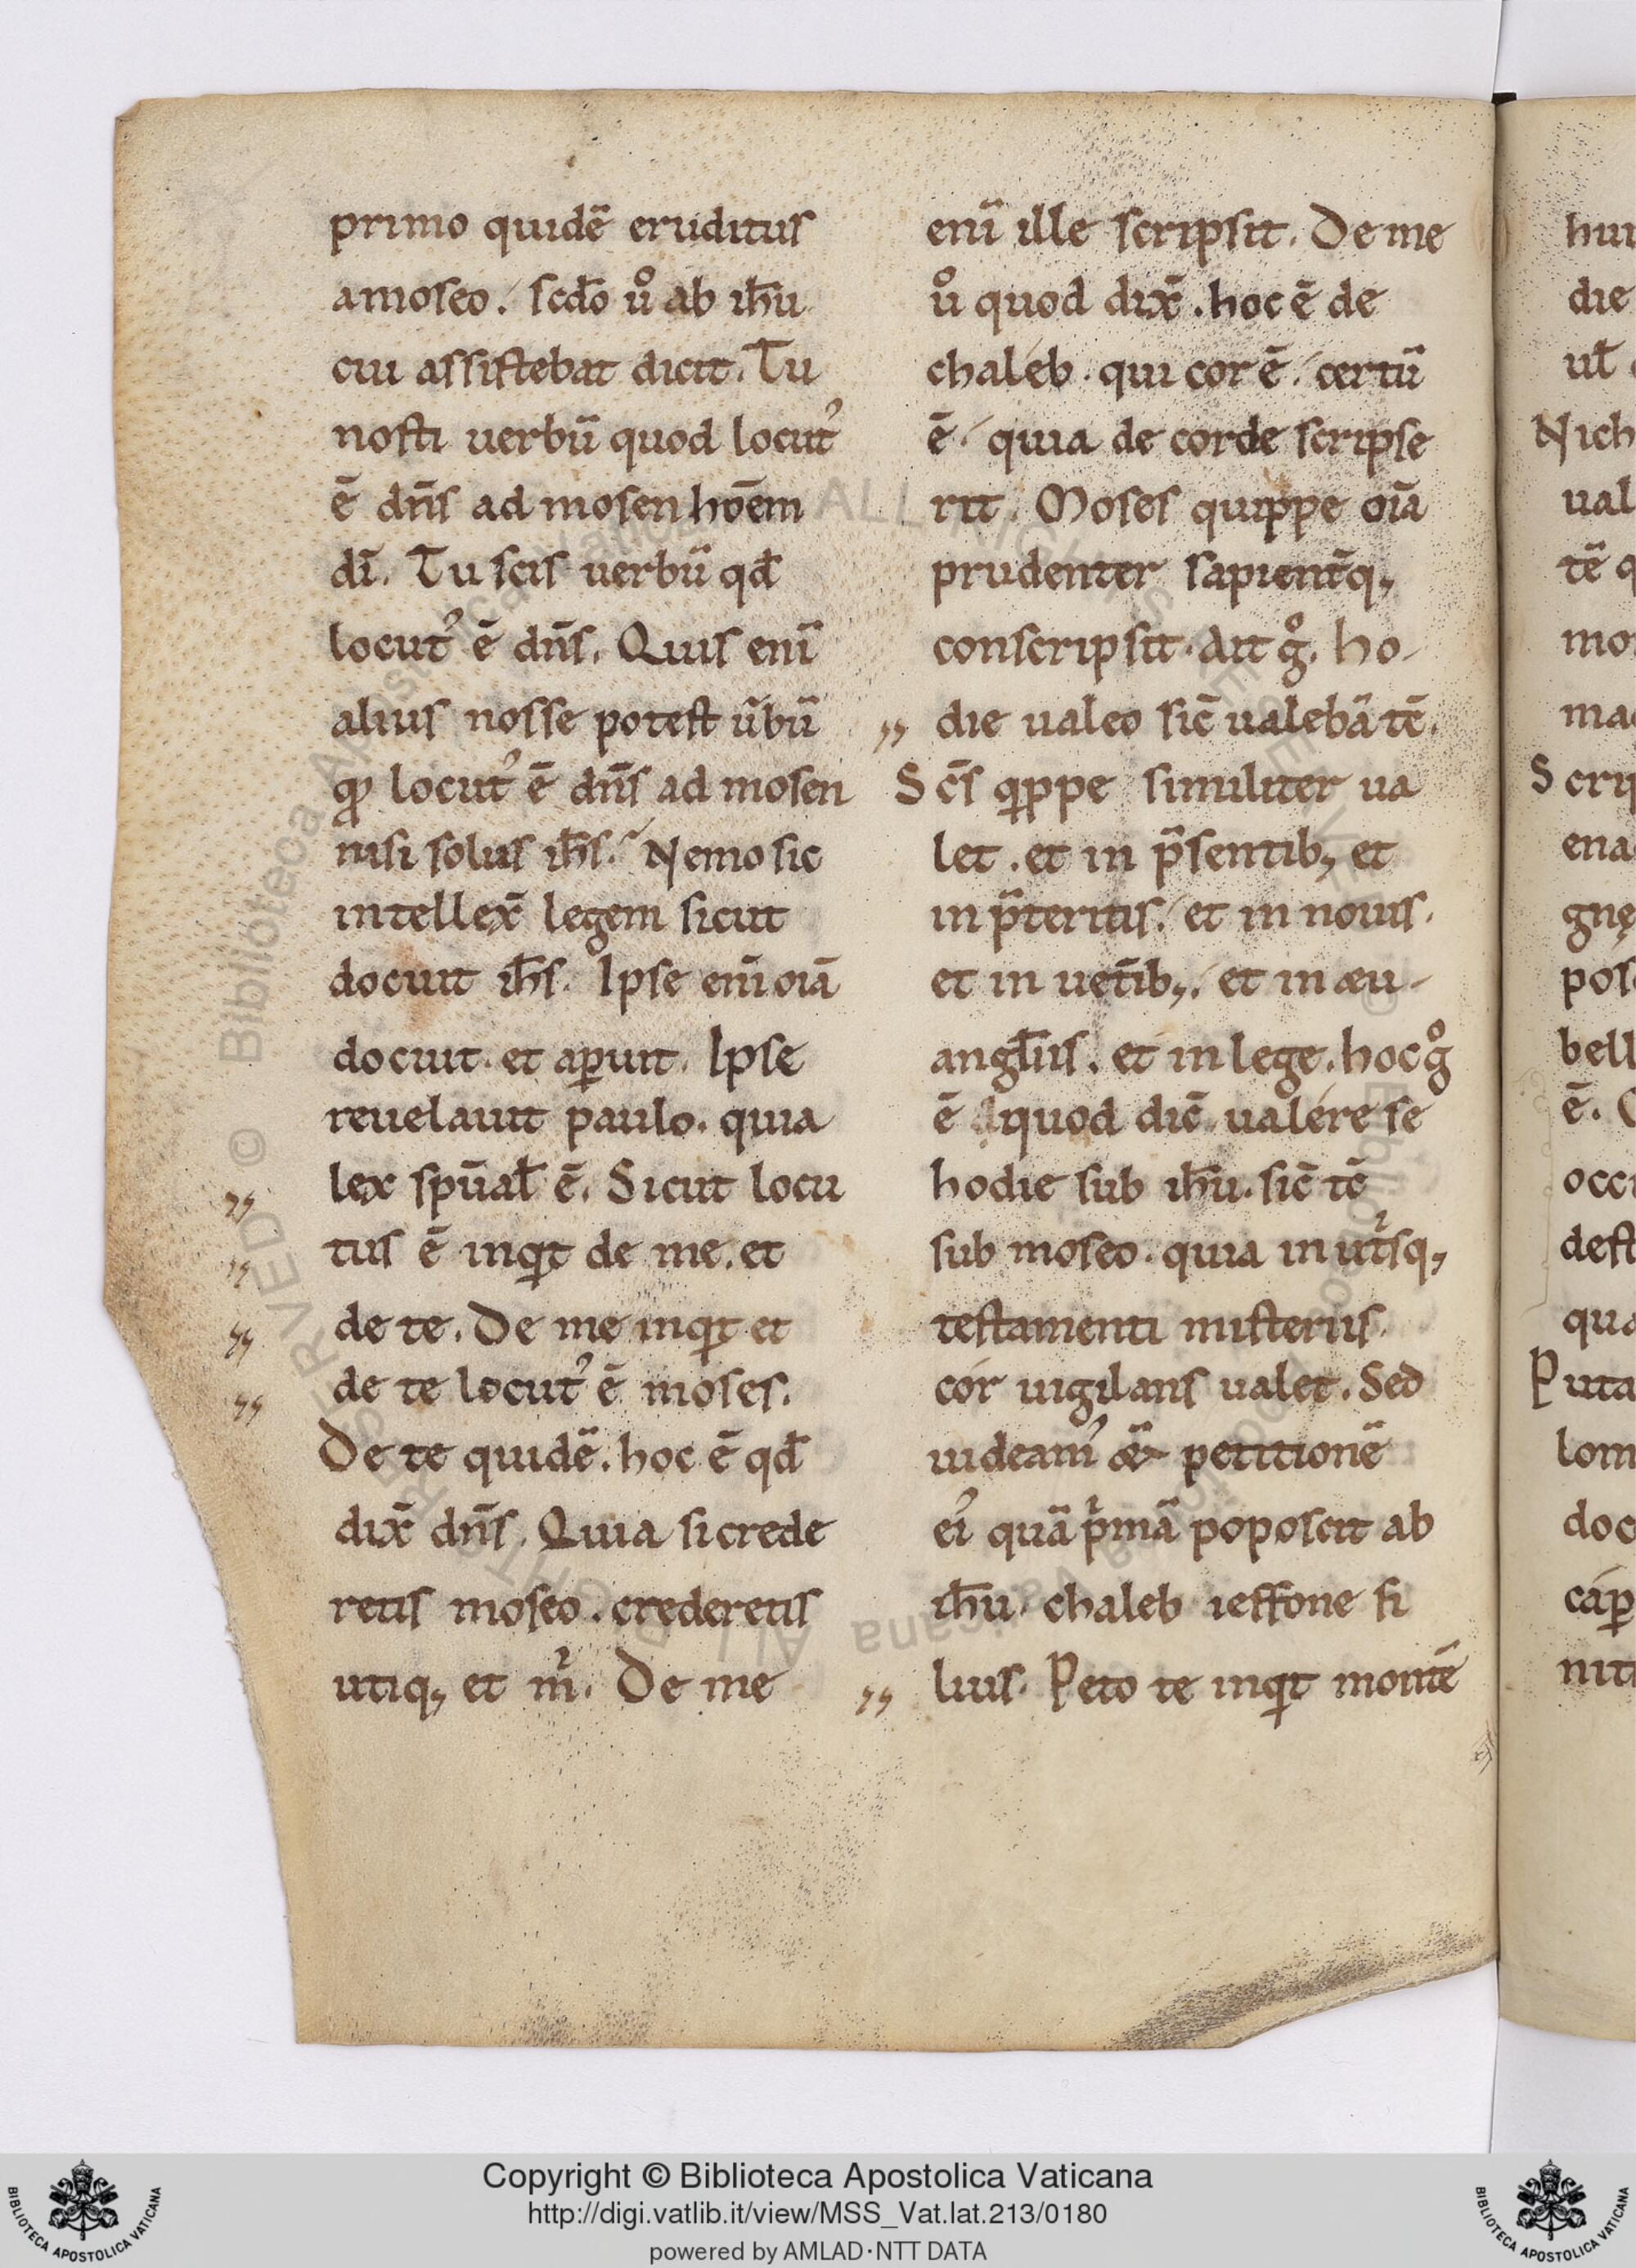 primo quidē eruditus
a moseo. scd̄o ů ab ih̄u
cui assistebat dicit. Tu
nosti uerbū quod locut᾿
ē dn̄s ad mosen hoēm
dī. Tu scis uerbū qd̄
locut᾿ ē dn̄s. Quis enī
alius nosse potest ūbū
qͦ locut᾿ ē dn̄s ad mosen
nisi solus ih̄s. Nemo sic
intellex̄ legem sicut
docuit ih̄s. Ipse enī oīā
docuit. et aꝑuit. Ipse
reuelauit paulo. quia
lex spūal̄ ē. Sicut locu
tus ē inqͥt de me. et
de te. De me inqͥt et
de te locut᾿ ē moses.
De te quidē. hoc ē qd̄
dix̄ dn̄s. Quia si crede
retis moseo. crederetis
utiq, et m̊. De me
enī ille scripsit. De me
ů quod dix̄. hoc ē de
chaleb. qui cor ē. certū
ē. quia de corde scripse
rit. Moses quippe oīā
prudenter sapient̄q,
conscripsit. Ait g̊. ho-
die ualeo sic̄ ualebā tc̄.
Sc̄s qͥppe similiter ua
let. et in p̄sentib, et
in p̄teritis. et in nouis.
et in uet̄ib,. et in æu-
angl̄iis. et in lege. hoc g̊
ē quod dic̄ ualere se
hodie sub ih̄u. sic̄ tc̄
sub moseo. quia in ut̊sq,
testamenti misteriis
cor uigilans ualet. Sed
uideam᾿ &̄ petitionē
ei᾿ quā pͥmā poposcit ab
ih̄u. chaleb ieffone fi
lius. Peto te inqͥt montē
Copyright © Biblioteca Apostolica Vaticana
http://digi.vatlib.it/view/MSS_Vat.lat.213/0180
powered by AMLAD·NTT DATA